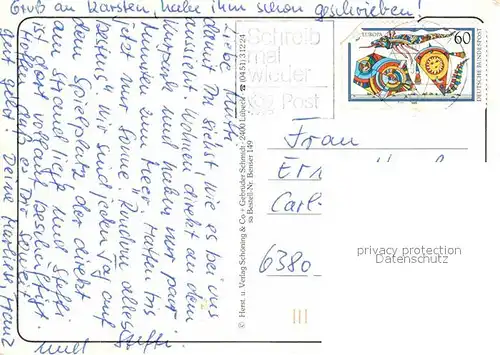 Gruß an Karsten, habe ihm schon geschrieben!
Liebe Mutti,
damit Du siehst, wie es bei uns
aussieht. Wohnen direkt an dem
Kurpark und haben nur paar
Minuten zum Meer. Hatten bis
jetzt nur Sonne. Rundum alles
bestens. Wir sind jeden Tag auf
dem Spielplatz der direkt
am Strand liegt und Steffi
ist dort vollauf beschäftigt.
Hoffen, daß es Dir soweit
gut geht! Deine Marliese, Franz
und Steffi.
© Herst. u. Verlag Schöning & Co + Gebrüder Schmidt · 2400 Lübeck ☎ (0451) 31234
Bestell-Nr. Benser 149
Schreib
mal
wieder
Post
EUROPA
60
DEUTSCHE BUNDESPOST
Frau
Ern
Carl-
6380
privacy protection
Datenschutz